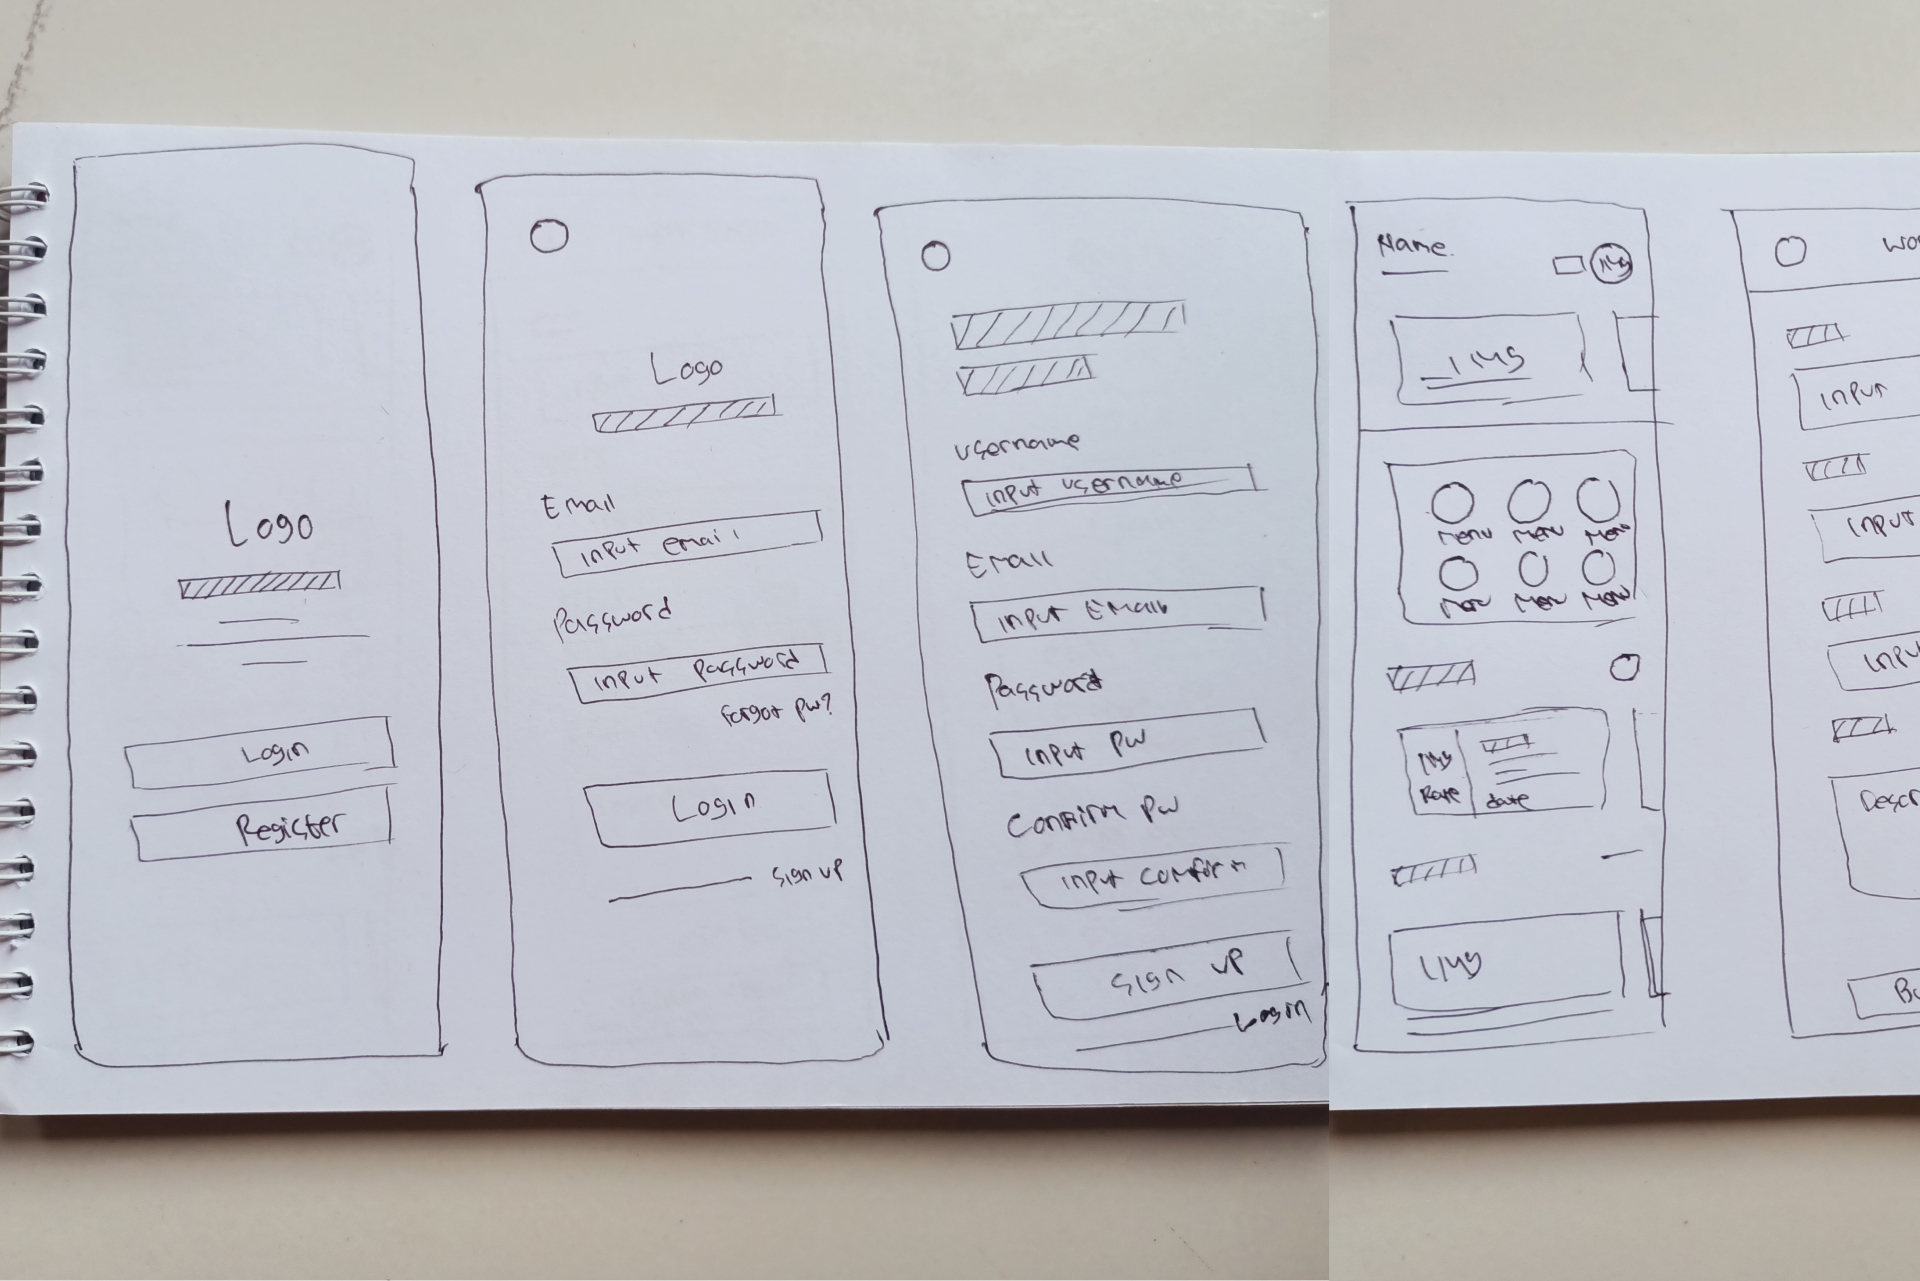 Logo
Login
Register
Logo
Email
Input email
Password
Input Password
Forgot Pw?
Login
Sign up
Username
Input username
Email
Input Email
Password
Input PW
Confirm PW
Sign up
Login
Name
IMG
IMG
Menu Menu Menu
Menu Menu Menu
IMG
Rate
date
IMG
Input
Input